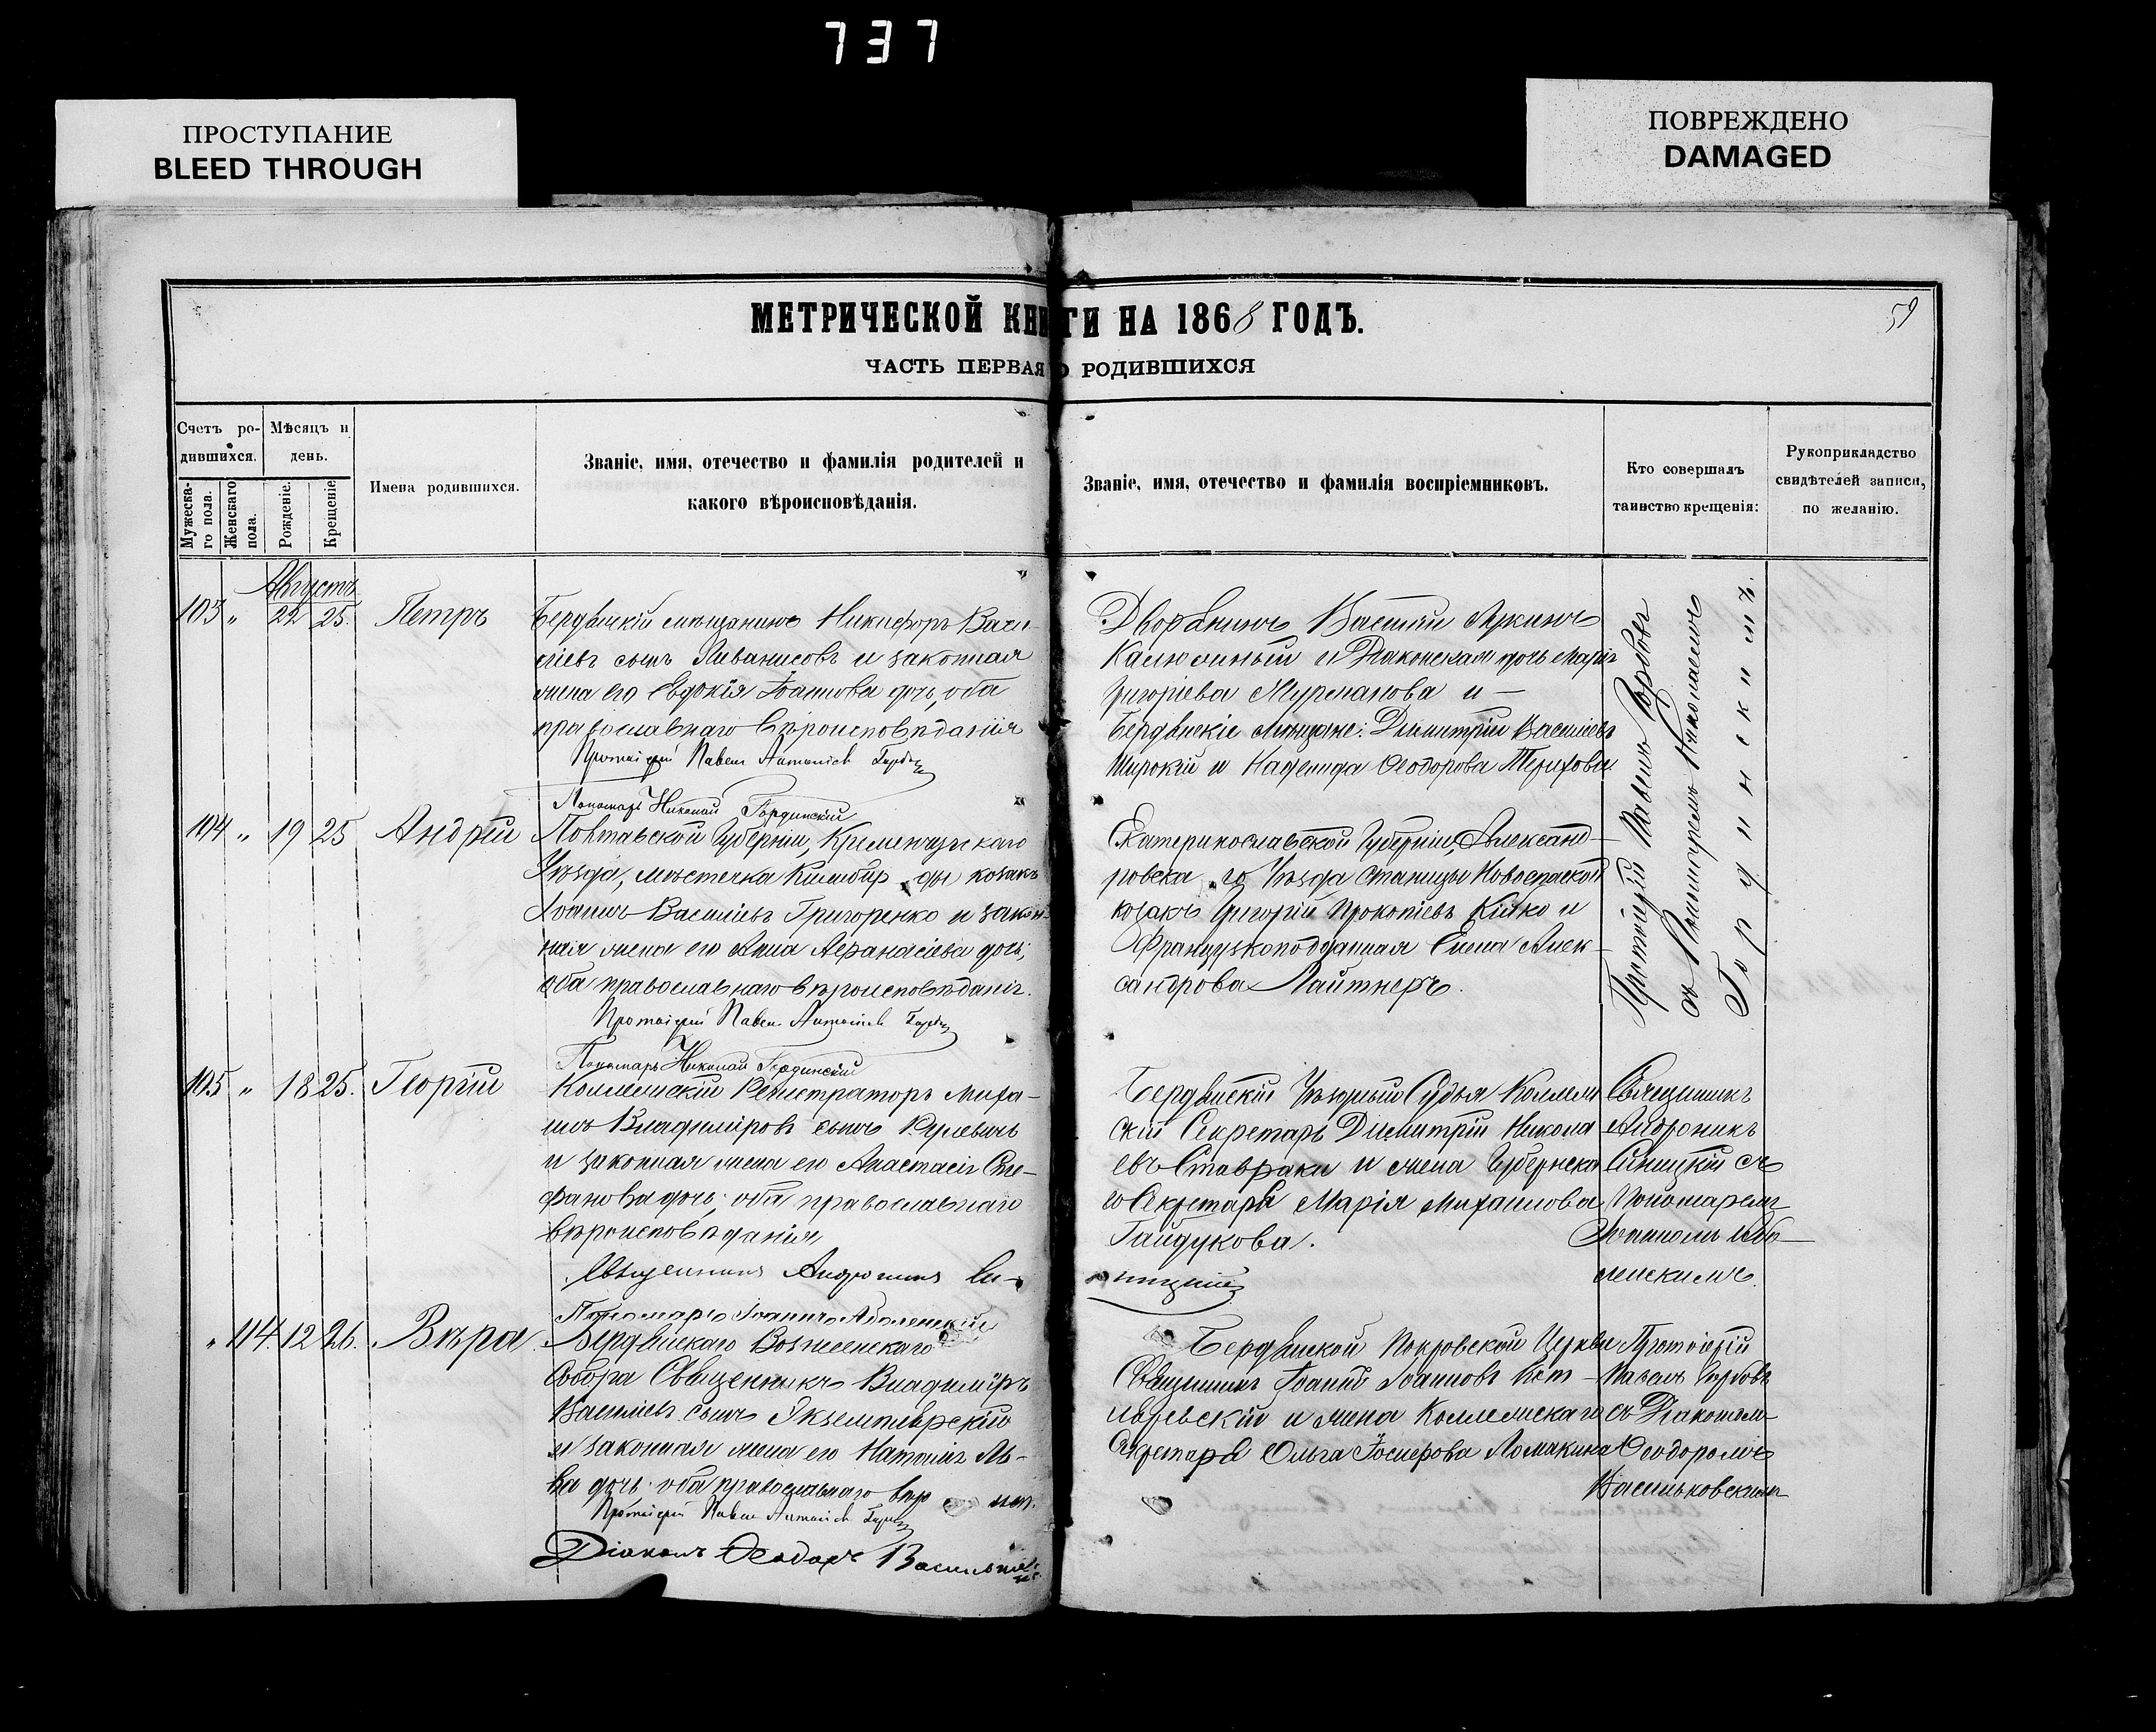 737
ПРОСТУПАНИЕ
BLEED THROUGH
ПОВРЕЖДЕНО
DAMAGED
МЕТРИЧЕСКОЙ КНИГИ НА 1868 ГОДЪ.
59
ЧАСТЬ ПЕРВАЯ О РОДИВШИХСЯ
Счетъ ро-
дившихся.
Мѣсяцъ и
день.
Мужеска-
го пола.
Женскаго
пола.
Рожденіе.
Крещеніе
Имена родившихся.
Званіе, имя, отечество и фамилія родителей и
какого вѣроисповѣданія.
Званіе, имя, отечество и фамилія воспріемниковъ.
Кто совершалъ
таинство крещенія:
Рукоприкладство
свидѣтелей записи,
по желанію.
Августъ
103 " 22 25. Петръ
Бердянскій мѣщанинъ Никифоръ Васи-
ліевъ сынъ и законная
жена его Евдокія Іоаннова дочь, оба
православнаго вѣроисповѣданія
Протоіерей Павелъ Антоніевъ
Пономарь Николай Гординскій
Дворянинъ Василій
и Діаконская дочь Марія
Григоріева и —
Бердянскіе мѣщане: Димитрій Василіевъ
Широкій и Надежда Ѳеодорова
Протоіерей Павелъ
съ Пономаремъ Николаемъ
Гординскимъ.
104 " 19 25 Андрей
Полтавской Губерніи, Кременчугскаго
Уѣзда, мѣстечка козакъ
Іоаннъ Василіевъ Григоренко и закон-
ная жена его Анна Аѳанасіева дочь,
оба православнаго вѣроисповѣданія.
Протоіерей Павелъ Антоніевъ
Пономарь Николай Гординскій
Екатеринославской Губерніи, Александ-
ровска го Уѣзда станицы Новоспаской
козакъ Григорій Прокопіевъ и
Французкоподданная Елена Алек-
сандрова Лайтнеръ.
105 " 18 25. Георгій
Коллежскій Регистраторъ Миха-
илъ Владиміровъ сынъ
и законная жена его Анастасія Сте-
фанова дочь, оба православнаго
вѣроисповѣданія
Священникъ Андроникъ Си-
ницкій
Пономарь Іоаннъ Аболенскій
Бердянскій Уѣздный Судья Коллеж
скій Секретарь Димитрій Никола
евъ Ставраки и жена Губернска
го Секретаря Марія Михаилова
Гайдукова.
Священникъ
Андроникъ
Синицкій съ
Пономаремъ
Іоанномъ Або-
ленскимъ.
" 114. 12 26. Вѣра
Бердянскаго Вознесенскаго
Собора Священникъ Владиміръ
Василіевъ сынъ Экземплярскій
и законная жена его Наталія Ль-
ва дочь оба православнаго вѣр
Протоіерей Павелъ Антоніевъ
Діаконъ Ѳеодоръ
Бердянской Покровской Церкви
Священникъ Іоаннъ Іоанновъ Кот-
ляревскій и жена Коллежскаго
Секретаря Ольга Іосифова Ломакина
Протоіерей
Павелъ
съ Діакономъ
Ѳеодоромъ
Васильковскимъ